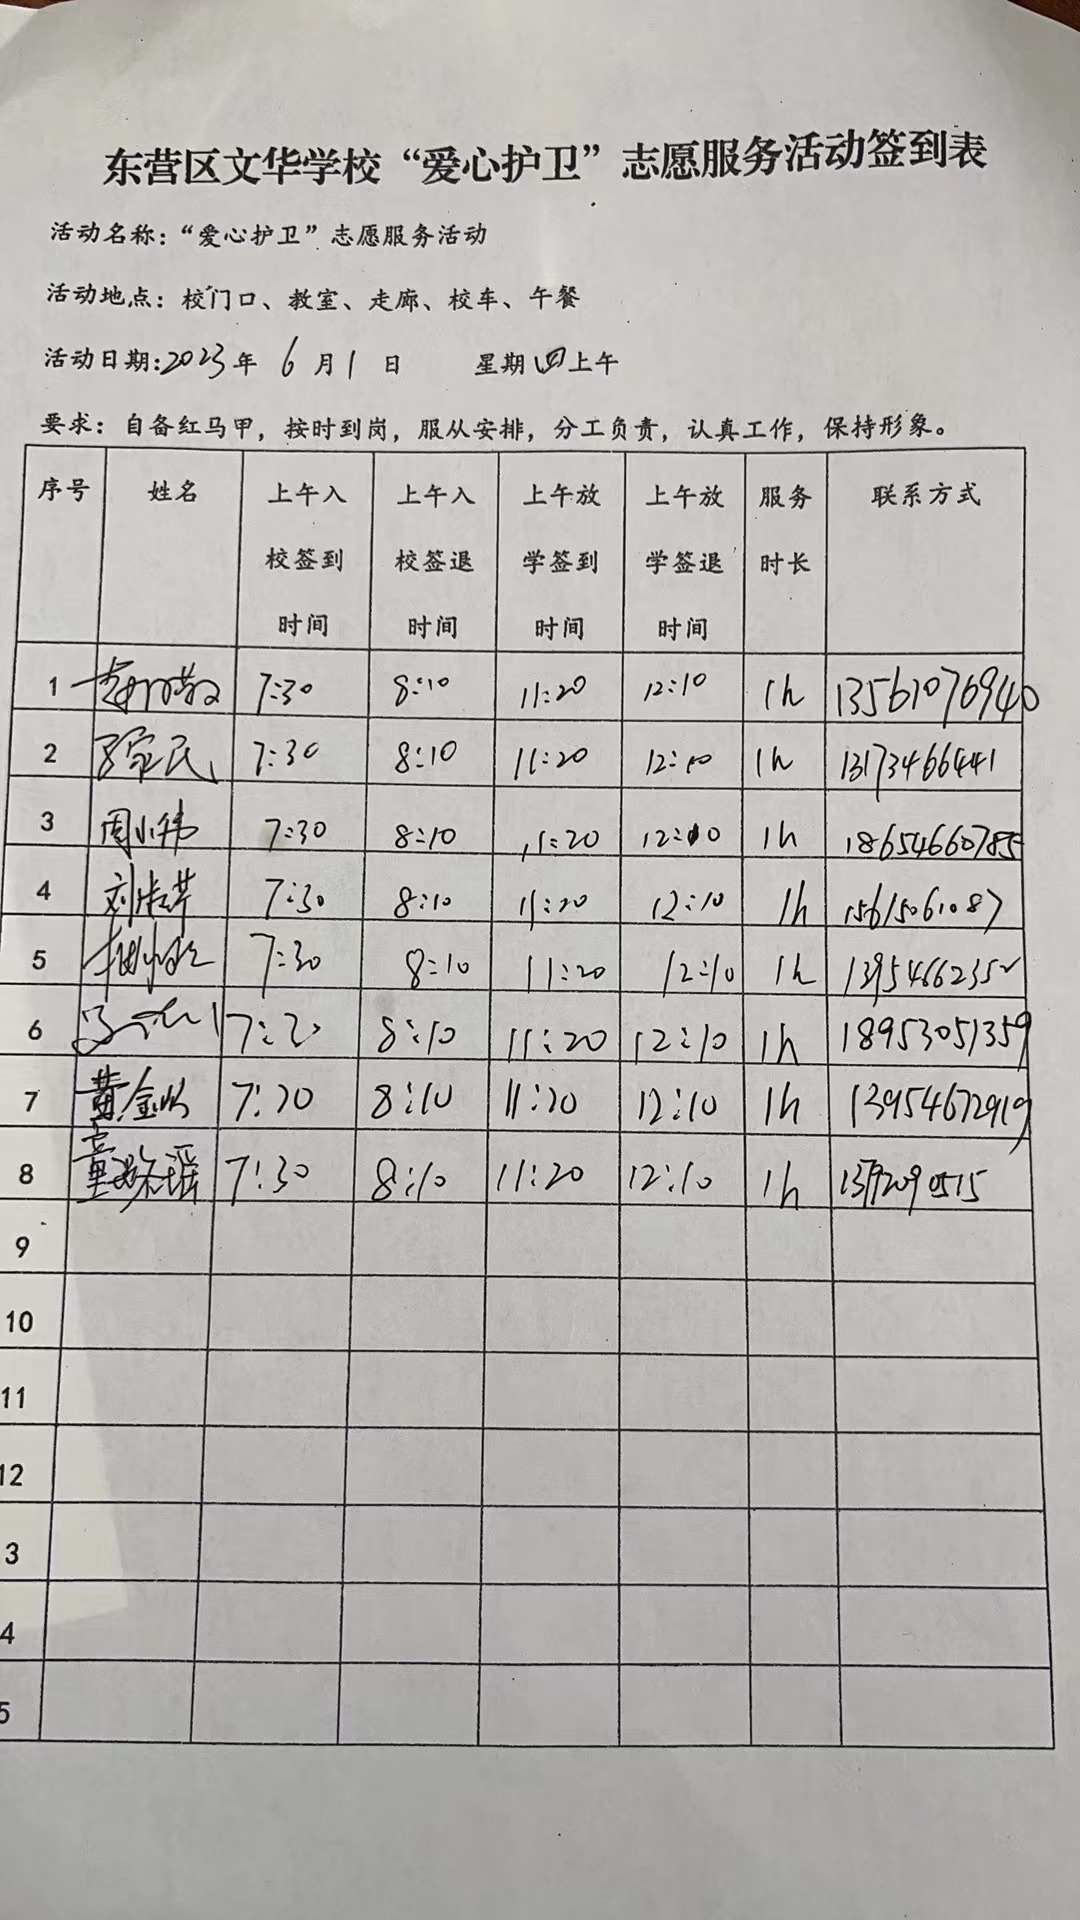 东营区文华学校“爱心护卫”志愿服务活动签到表
活动名称：“爱心护卫”志愿服务活动
活动地点：校门口、教室、走廊、校车、午餐
活动日期:2023年 6月1日 星期四上午
要求：自备红马甲，按时到岗，服从安排，分工负责，认真工作，保持形象。
序号 姓名 上午入校签到时间 上午入校签退时间 上午放学签到时间 上午放学签退时间 服务时长 联系方式
1 7:30 8:10 11:20 12:10 1h 13561076940
2 7:30 8:10 11:20 12:10 1h 13173466441
3 周小伟 7:30 8:10 11:20 12:10 1h 18654660785
4 7:30 8:10 11:20 12:10 1h 15615061087
5 7:30 8:10 11:20 12:10 1h 13954662352
6 8:10 11:20 12:10 1h 18953051359
7 8:10 11:20 12:10 1h 13954672919
8 7:30 8:10 11:20 12:10 1h
9
10
11
12
3
4
5